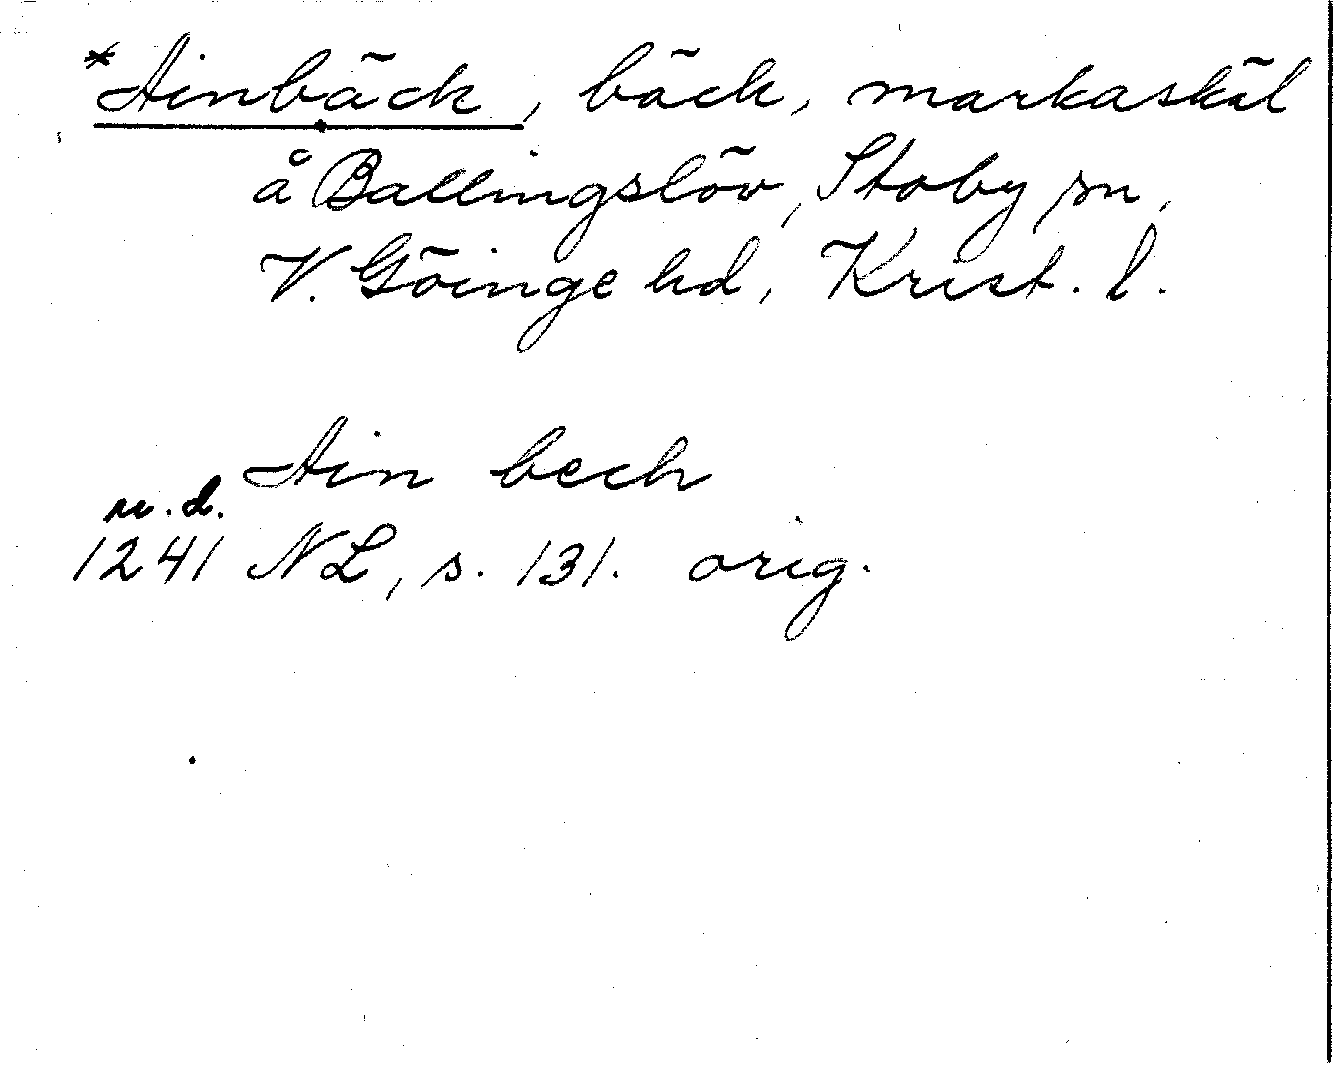 *Ainbäck, bäck, markaskäl
å Ballingslöv, Stoby sn,
V. Göinge hd, Krist. l.
Ain bech
u.d.
1241 NL, s. 131. orig.